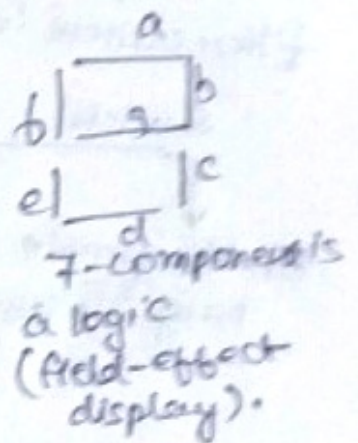 a
f b
g
e c
d
7-components is
a logic
(field-effect
display).